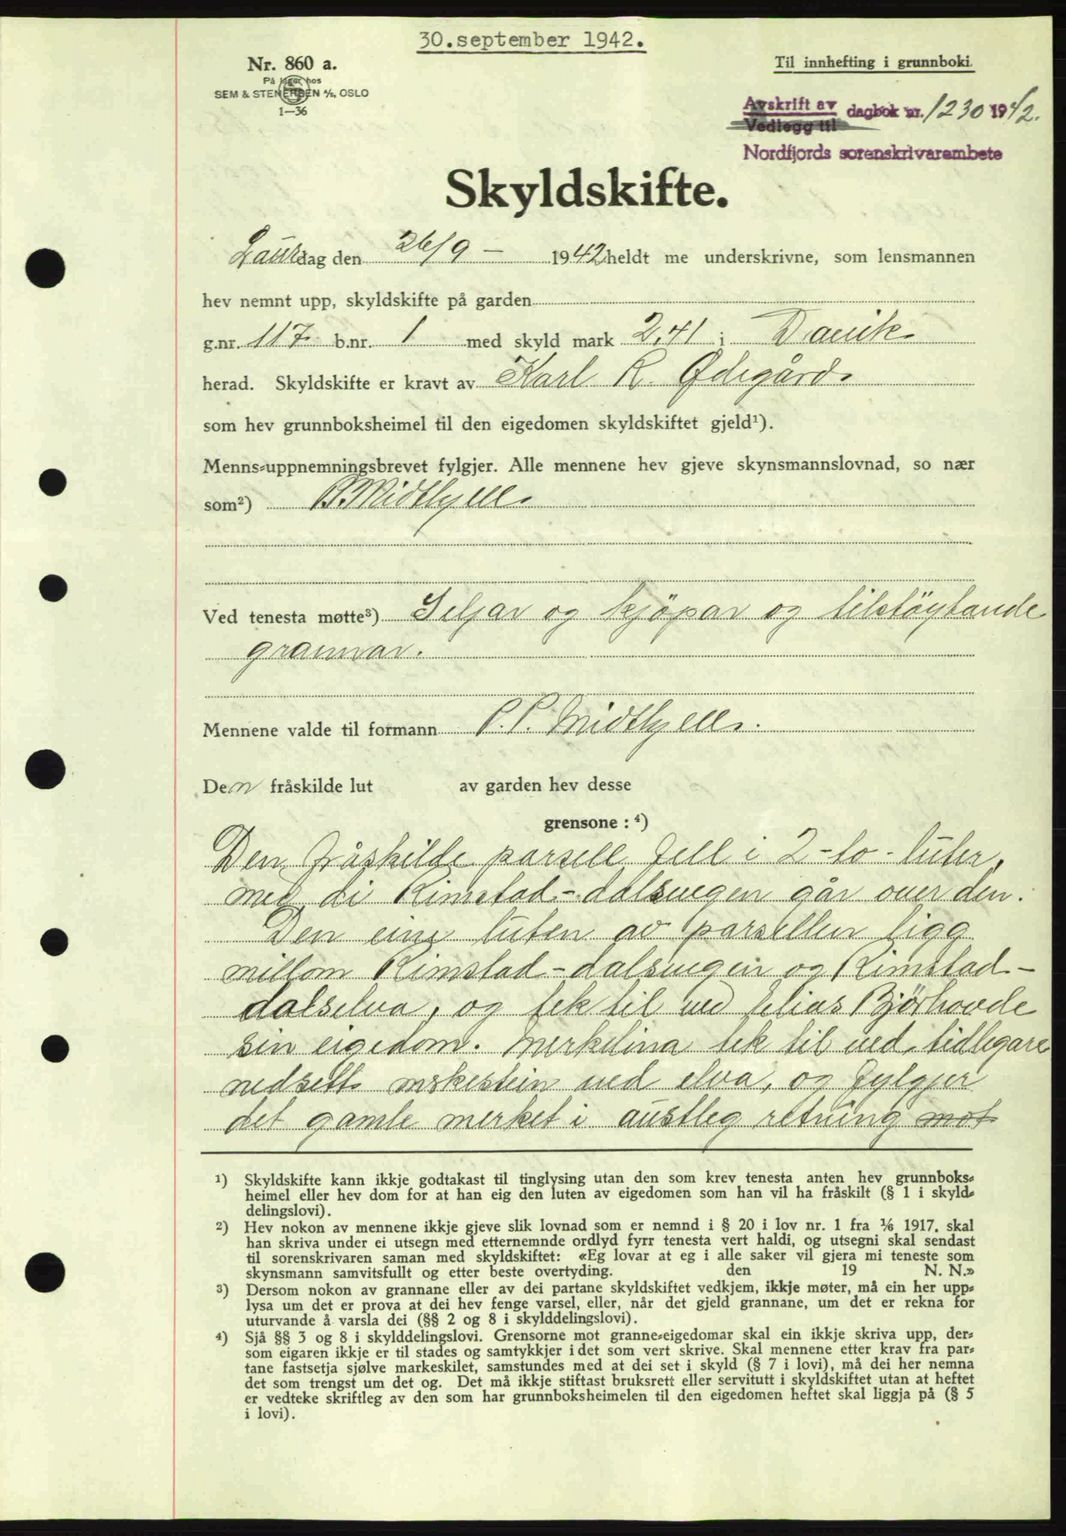 30.september 1942.
Nr. 860 a.
På lager hos
SEM & STENERSEN A/S, OSLO
1—36
Til innhefting i grunnboki.
Avskrift av
Vedlegg til
dagbok nr. 1230 1942.
Nordfjords sorenskrivarembete
Skyldskifte.
Laurdag den 26/9 – 1942 heldt me underskrivne, som lensmannen
hev nemnt upp, skyldskifte på garden
g.nr. 117 b.nr. 1 med skyld mark 2,41 i Davik
herad. Skyldskifte er kravt av Karl R. Ødegård
som hev grunnboksheimel til den eigedomen skyldskiftet gjeld¹).
Menns-uppnemningsbrevet fylgjer. Alle mennene hev gjeve skynsmannslovnad, so nær
som²) P. Midthjell.
Ved tenesta møtte³) Seljar og kjöpar og tilstöytande
grannar.
Mennene valde til formann P. P. Midthjell.
Den fråskilde lut av garden hev desse
grensone: ⁴)
Den fråskilde parsell fell i 2-to-luter,
med di Rimstad-dalsvegen går over den.
Den eine luten av parsellen ligg
millom Rimstad-dalsvegen og Rimstad-
dalselva, og tek til ved Elias Bjørhovde
sin eigedom. Merkelina tek til ved tidlegare
nedsett merkestein ved elva, og fylgjer
det gamle merket i austleg retning mot
¹) Skyldskifte kann ikkje godtakast til tinglysing utan den som krev tenesta anten hev grunnboks-
heimel eller hev dom for at han eig den luten av eigedomen som han vil ha fråskilt (§ 1 i skyld-
delingslovi).
²) Hev nokon av mennene ikkje gjeve slik lovnad som er nemnd i § 20 i lov nr. 1 fra 1/6 1917, skal
han skriva under ei utsegn med etternemnde ordlyd fyrr tenesta vert haldi, og utsegni skal sendast
til sorenskrivaren saman med skyldskiftet: «Eg lovar at eg i alle saker vil gjera mi teneste som
skynsmann samvitsfullt og etter beste overtyding. den 19 N. N.»
³) Dersom nokon av grannane eller av dei partane skyldskiftet vedkjem, ikkje møter, må ein her upp-
lysa um det er prova at dei hev fenge varsel, eller, når det gjeld grannane, um det er rekna for
uturvande å varsla dei (§§ 2 og 8 i skylddelingslovi).
⁴) Sjå §§ 3 og 8 i skylddelingslovi. Grensorne mot granne-eigedomar skal ein ikkje skriva upp, der-
som eigaren ikkje er til stades og samtykkjer i det som vert skrive. Skal mennene etter krav fra par-
tane fastsetja sjølve markeskilet, samstundes med at dei set i skyld (§ 7 i lovi), må dei her nemna
det som trengst um det og. Det må ikkje stiftast bruksrett eller servitutt i skyldskiftet utan at heftet
er vedteke skriftleg av den som har grunnboksheimelen til den eigedomen heftet skal liggja på (§ 5
i lovi).